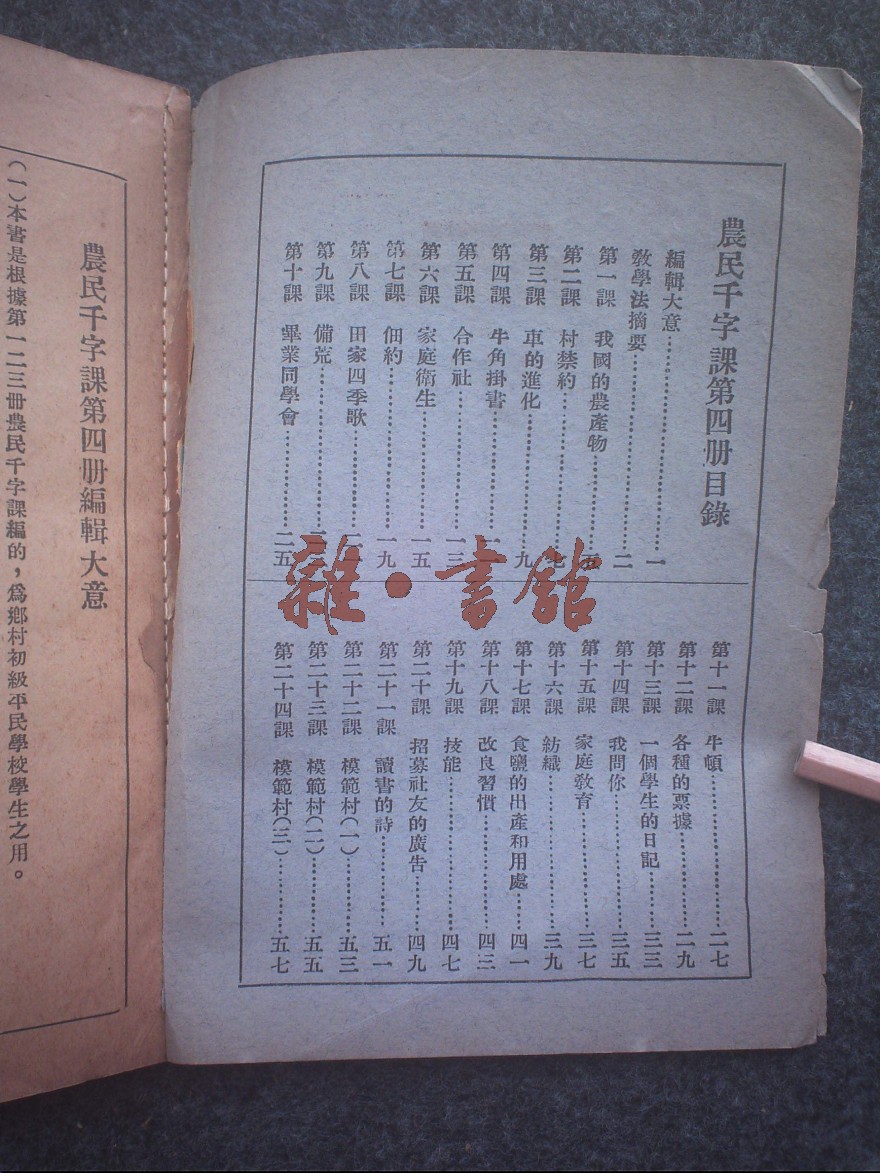 農民千字課第四册目錄
編輯大意……………………一
教學法摘要……………………二
第一課　我國的農產物……………
第二課　村禁約……………七
第三課　車的進化……………九
第四課　牛角掛書……………
第五課　合作社……………一三
第六課　家庭衛生……………一五
第七課　佃約……………一九
第八課　田家四季歌……………
第九課　備荒……………
第十課　畢業同學會……………二五
第十一課　牛頓……………二七
第十二課　各種的票據……………二九
第十三課　一個學生的日記……………三三
第十四課　我問你……………三五
第十五課　家庭敎育……………三七
第十六課　紡織……………三九
第十七課　食鹽的出產和用處……四一
第十八課　改良習慣……………四三
第十九課　技能……………四七
第二十課　招募社友的廣告……四九
第二十一課　讀書的詩……………五一
第二十二課　模範村(一)……………五三
第二十三課　模範村(二)……………五五
第二十四課　模範村(三)……………五七
雜·書館
農民千字課第四册編輯大意
(一)本書是根據第一二三册農民千字課編的，爲鄉村初級平民學校學生之用。